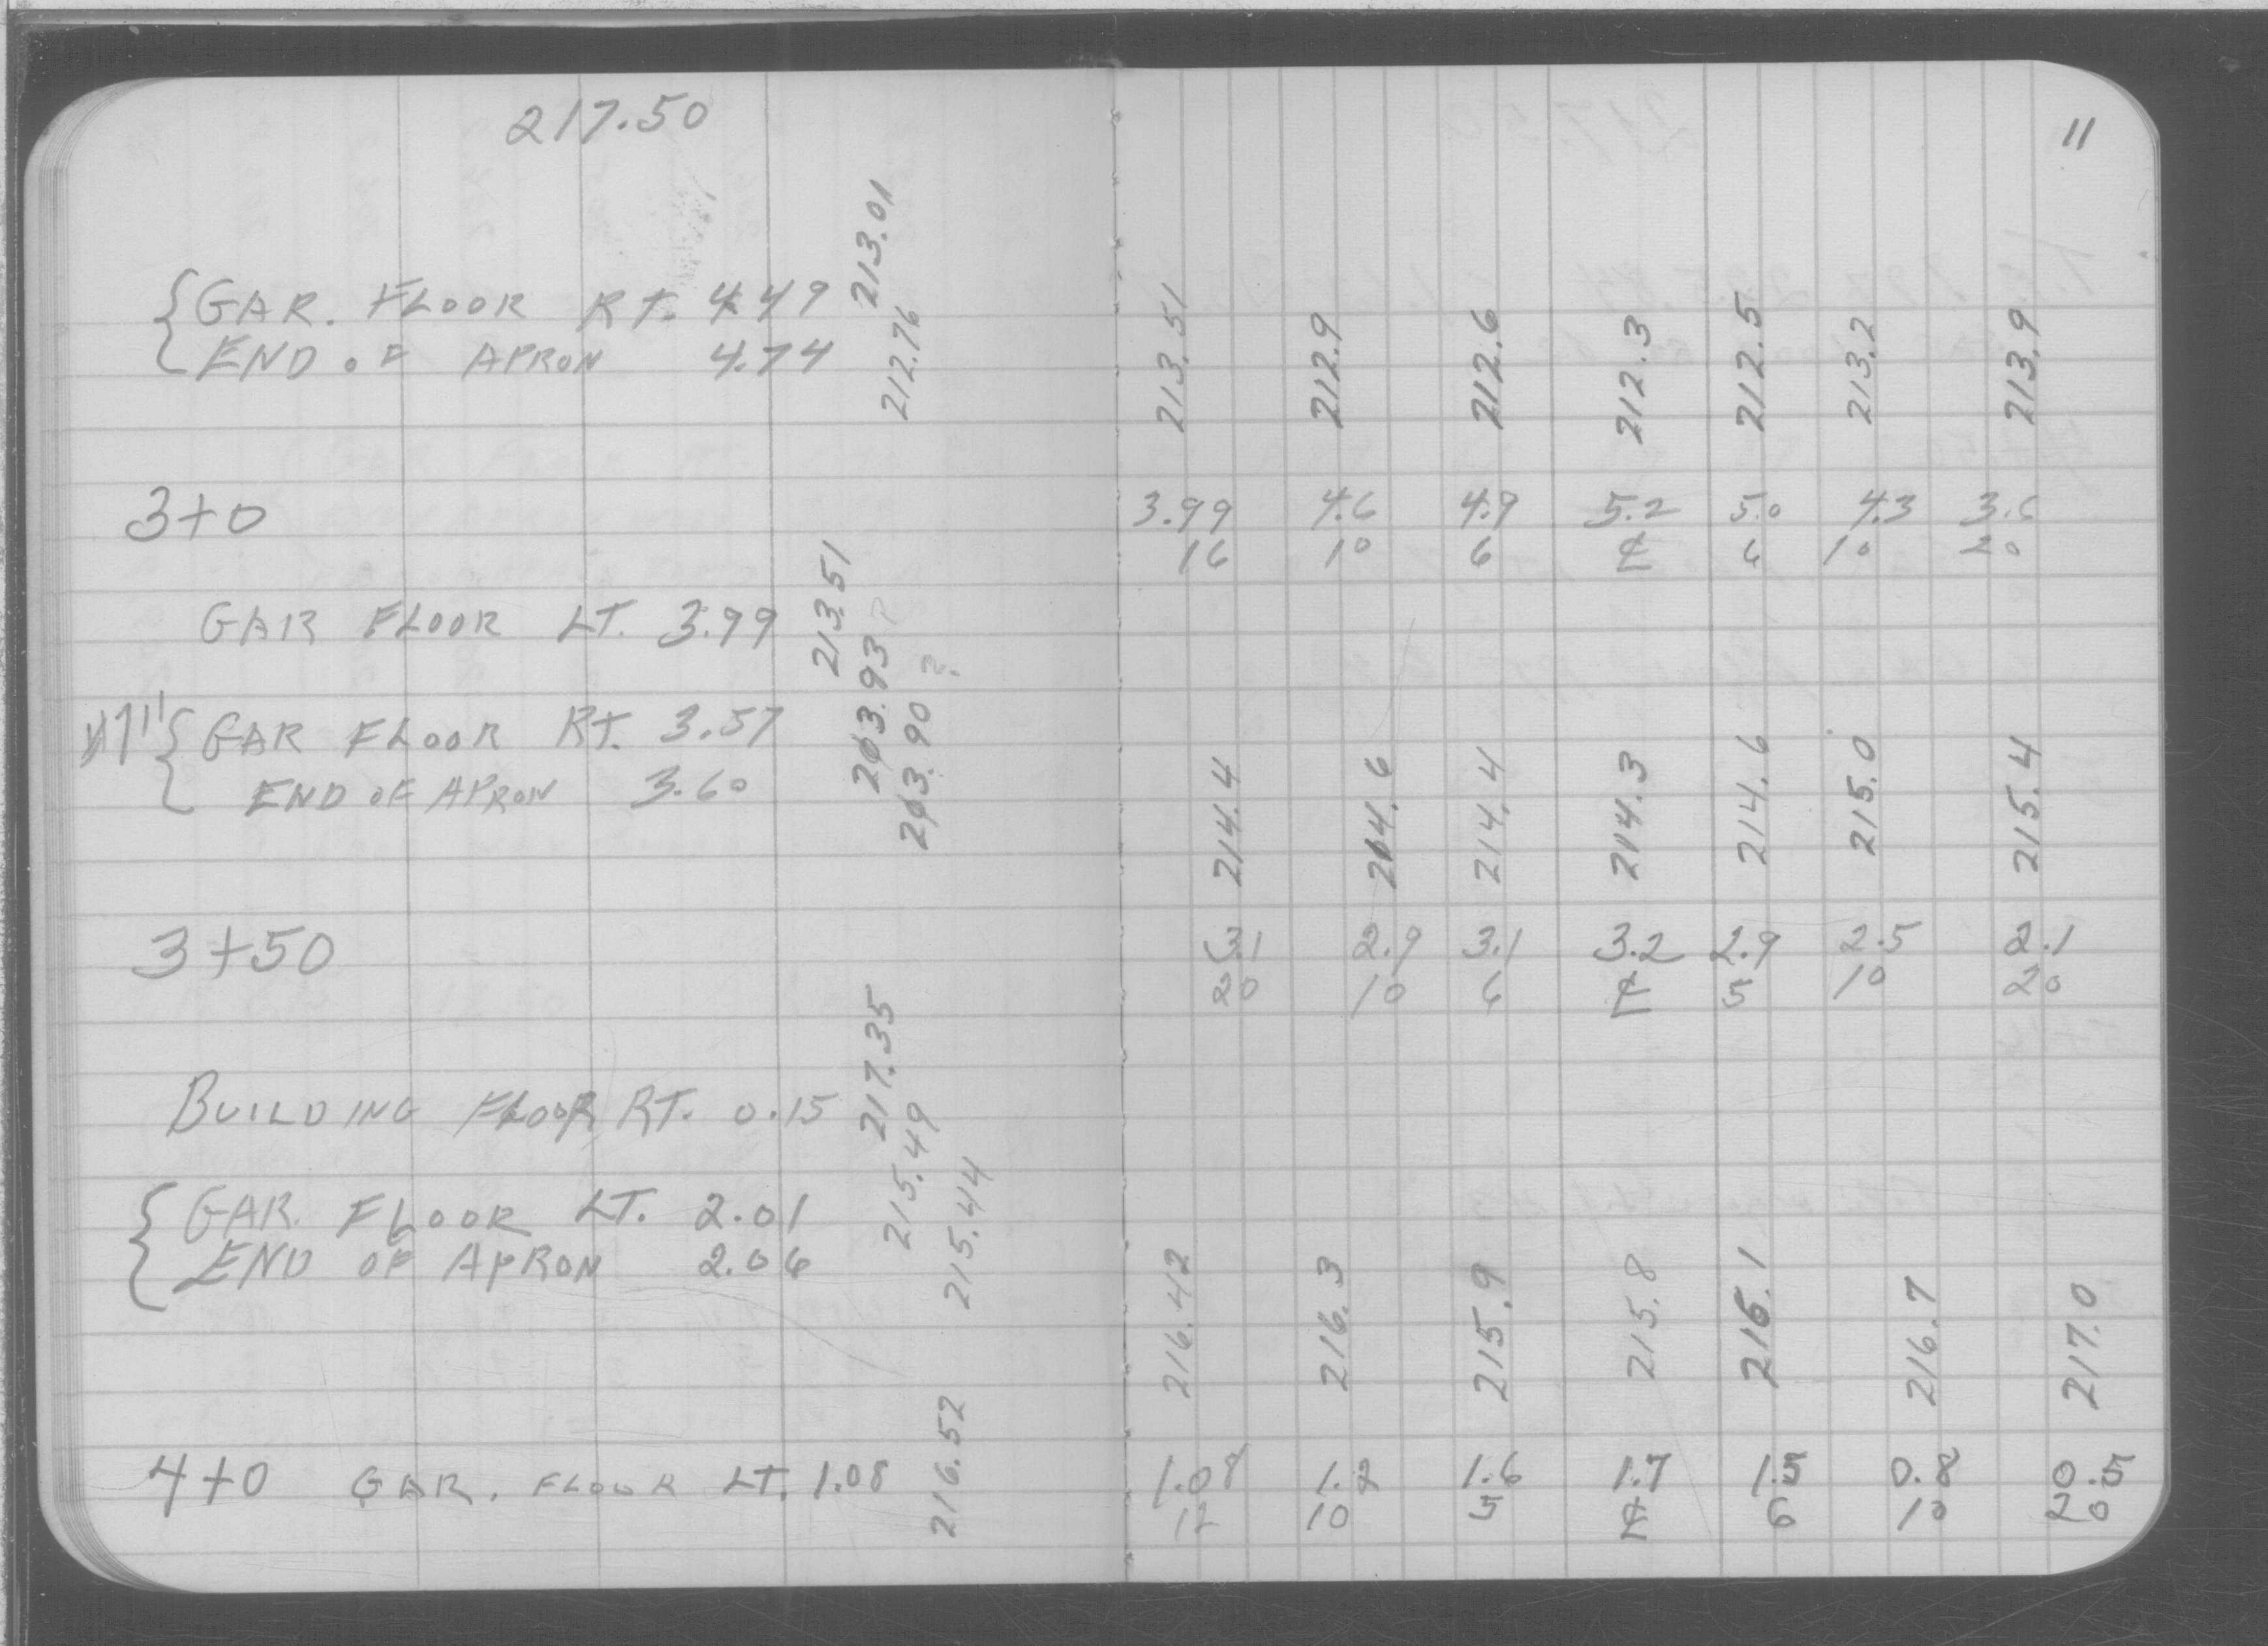 217.50
11
{ GAR. FLOOR RT. 4.49 213.01
END OF APRON 4.74 212.76
213.51 212.9 212.6 212.3 212.5 213.2 213.9
3+0 3.99 4.6 4.9 5.2 5.0 4.3 3.6
16 10 6 ℄ 6 10 20
GAR FLOOR LT. 3.99 213.51
{ GAR FLOOR RT. 3.57 213.93 ?
END OF APRON 3.60 213.90 ?
214.4 214.6 214.4 214.3 214.6 215.0 215.4
3+50 3.1 2.9 3.1 3.2 2.9 2.5 2.1
20 10 6 ℄ 5 10 20
BUILDING FLOOR RT. 0.15 217.35
{ GAR. FLOOR LT. 2.01 215.49
END OF APRON 2.06 215.44
216.42 216.3 215.9 215.8 216.1 216.7 217.0
4+0 GAR. FLOOR LT. 1.08 216.52 1.08 1.6 1.7 1.5 0.8 0.5
12 10 5 ℄ 6 10 20